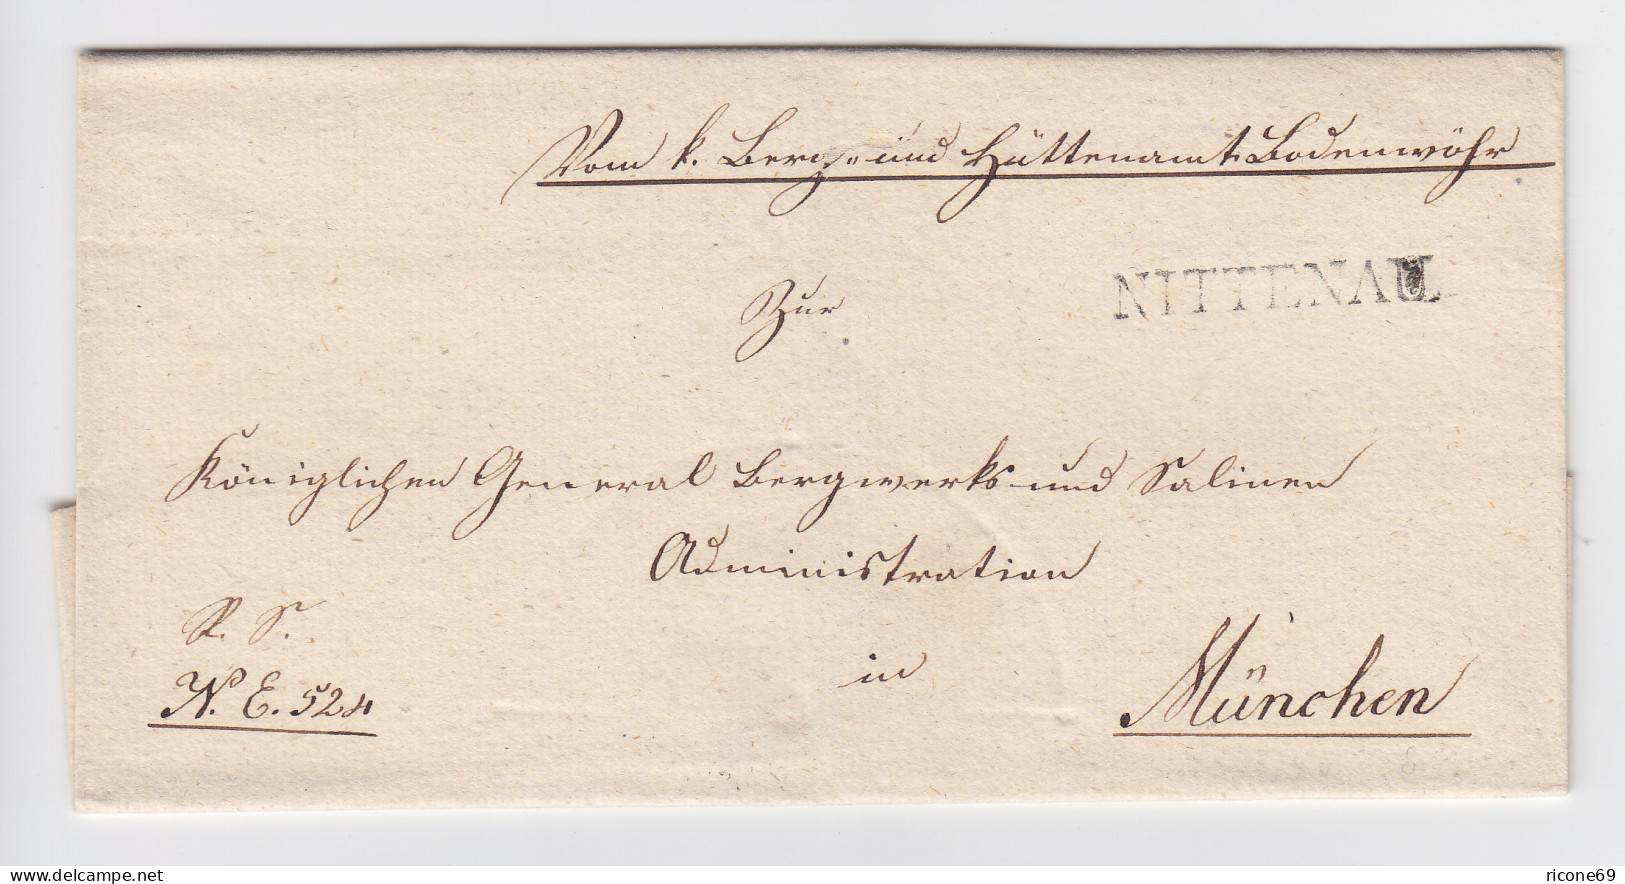 Vom k. Berg- und Hüttenamt Bodenwöhr
NITTENAU
Zur
Königlichen General Bergwerks und Salinen
Administration
R. S.
N. E. 524
in
München
www.delcampe.net
ricone69